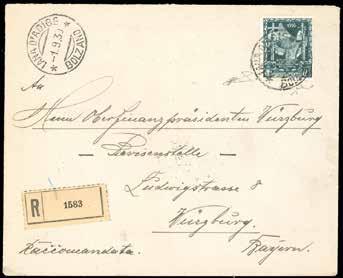 LANA D'ADIGE
-1.9.3
An
Herrn Oberfinanzpräsidenten Würzburg
— Devisenstelle —
Ludwigstrasse 8
Würzburg.
Bayern.
R 1583
Raccomandata.